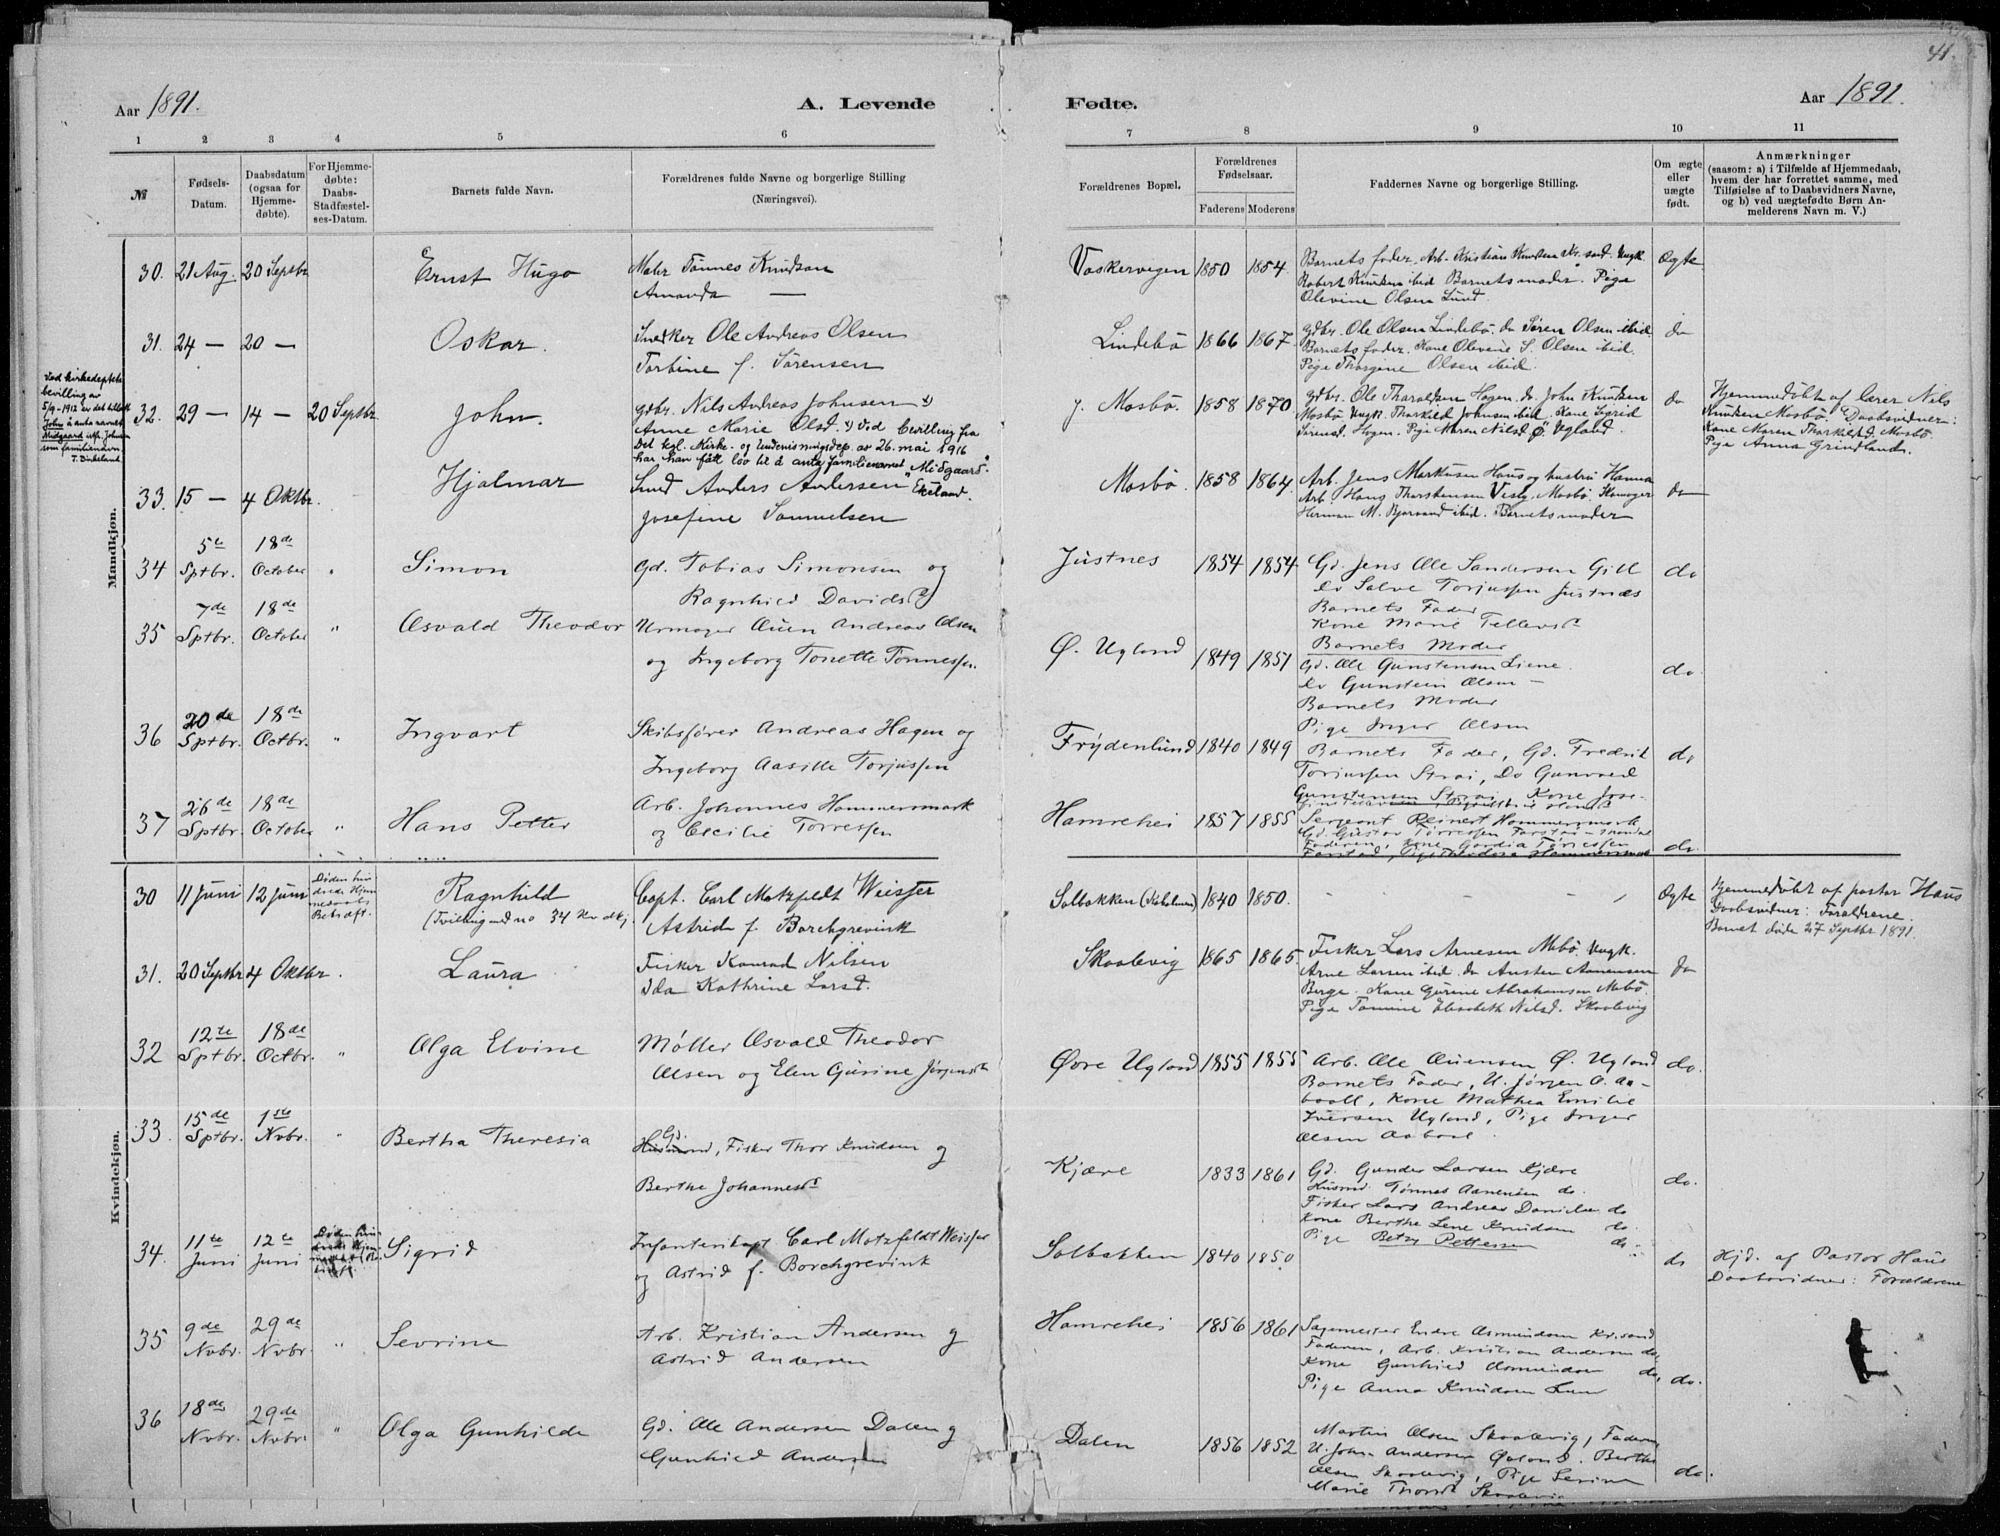 41.
Aar 1891.
A. Levende
Fødte.
Aar 1891.
1 2 3 4 5 6 7 8 9 10 11
№
Fødsels-
Datum.
Daabsdatum
(ogsaa for
Hjemme-
døbte).
For Hjemme-
døbte:
Daabs-
Stadfæstel-
ses-Datum.
Barnets fulde Navn.
Forældrenes fulde Navne og borgerlige Stilling
(Næringsvei).
Forældrenes Bopæl.
Forældrenes
Fødselsaar.
Faderens Moderens
Faddernes Navne og borgerlige Stilling.
Om ægte
eller
uægte
født.
Anmærkninger
(saasom: a) i Tilfælde af Hjemmedaab,
hvem der har forrettet samme, med
Tilføielse af to Daabsvidners Navne,
og b) ved uægtefødte Børn An-
melderens Navn m. V.)
Mandkjøn.
30. 21 Aug. 20 Septbr
Ernst Hugo
Maler Tønnes Knudsen
Amanda —
Vaskervegen 1850 1854.
Barnets fader. Arb. Kristian Knudsen Kr.sand. Ungk.
Robert Knudsen ibid Barnets moder. Pige
Olevine Olsen Lund.
Ægte
31. 24 — 20 —
Oskar.
Snedker Ole Andreas Olsen
Torbine f. Sørensen
Lindebö 1866 1867.
Gdbr. Ole Olsen Lindebö do Søren Olsen ibid.
Barnets fader. Kone Olevine S. Olsen ibid.
Pige Thorgine Olsen ibid.
do
Ved kirkedeptets
bevilling av
5/9-1912 er det tillatt
John å anta navnet
Midgaard istf. Johnsen
som familienavn.
T. Birkeland.
32. 29 — 14 — 20 Septbr
John.
Gdbr. Nils Andreas Johnsen 1)
Anne Marie Olsd. 1) Ved bevilling fra
Det kgl. Kirke- og Undervisningsdep. av 26. mai 1916
har han fått lov til å anta familienavnet "Midgaard".
y. Mosbö. 1858 1870
Gdbr. Ole Tharaldsen Hagen do. John Knudsen
Mosbö Ungk. Tharkild Johnsen ibid. Kone Sigrid
Sørensd. Hagen. Pige Maren Nilsd Ø. Ugland.
do
Hjemmedöbt af lærer Nils
Knudsen Mosbö. Daabsvidner:
Kone Maren Tharkildsd. Mosbö.
Pige Anna Grindland.
33. 15 — 4 Oktbr.
Hjalmar
Smed Anders Andersen Ekeland.
Josefine Samuelsen
Mosbö. 1858 1864.
Arb. Jens Markusen Haus og hustru Hanna
Arb. Hans Tharstensen Vesty. Mosbö. Skomager
Herman M. Bjorvand ibid. Barnets moder
do
34 5te Sptbr. 18de October "
Simon
Gd. Tobias Simonsen og
Ragnhild Davidsd
Justnes 1854 1854
Gd. Jens Ole Sandersen Gill
do Salve Torjussen Justnes
Barnets Fader
Kone Marie Tellevsd
Barnets Moder
do
35 7de Sptbr. 18de October "
Osvald Theodor
Urmager Ouen Andreas Olsen
og Ingeborg Tonette Tønnessen.
Ø. Ugland 1849 1851
Gd. Ole Gunstensen Liene.
do Gunstein Olsen —
Barnets Moder
Pige Inger Olsen
do
36 20de Sptbr. 18de Octbr. "
Ingvart
Skibsfører Andreas Hagen og
Ingeborg Aasille Torjussen
Frydenlund 1840 1849
Barnets Fader, Gd. Fredrik
Torjussen Strai, do Gunvald
Gunstensen Strai, Kone Jose-
do
37 26de Sptbr. 18de October "
Hans Petter
Arb. Johannes Hammersmark
og Cecilie Torressen
Hamrehei 1857 1855
Sergeant Reinert Hammersmark
Gd. Gustav Torressen Farstad
Faderen, Kone Gordia Torressen
Farstad, Pige Theodora Hammersmark
do.
Kvindekjøn.
30 11 Juni 12 Juni
Døden hin-
drede Hjem-
medaabs
Bekræft.
Ragnhild
(Tvilling med no 34 Kv. dkj.
Capt. Carl Motzfeldt Weisser
Astrid f. Borchgrevink
Solbakken 1840 1850.
Ægte
Hjemmedöbt af pastor Haus
Daabsvidner: Forældrene.
Barnet døde 27 Septbr 1891.
31. 20 Septbr 4 Oktbr.
Laura
Fisker Konrad Nilsen
Ida Kathrine Larsd.
Skaalevig 1865 1865.
Fisker Lars Arnesen Mebö. Ungk.
Arne Larsen ibid. do Austen Aanensen
Berge. Kone Gurine Abrahamsen Mebö.
Pige Tomine Elisabeth Nilsd. Skaalevig
do
32 12te Sptbr. 18de Octbr. "
Olga Elvine
Møller Osvald Theodor
Olsen og Elen Gurine Jørgensd
Øvre Ugland 1855 1855
Arb. Ole Ouensen Ø. Ugland
Barnets Fader, U. Jørgen O. Aa-
baall, Kone Mathea Emilie
Iversen Ugland, Pige Inger
Olsen Aabaal.
do.
33. 15de Sptbr. 1ste Nvbr. "
Bertha Theresia
Gd.
Husmand, Fisker Thor Knudsen og
Berthe Johannesd
Kjære 1833 1861
Gd. Gunder Larsen Kjære
Husmd. Tønnes Aanensen do.
Fisker Lars Andreas Danielsen do
Kone Berthe Lene Knudsen do.
Pige Betzy Pettersen do.
do.
34. 11te Juni 12te Juni
Døden hin-
Sigrid
Infanterikapt Carl Motzfeldt Weisser
og Astrid f. Borchgrevink
Solbakken 1840 1850
do
Hjd. af Pastor Haus
Daabsvidner: Forældrene
35 9de Nvbr. 29de Nvbr. "
Sevrine
Arb. Kristian Andersen og
Astrid Andersen
Hamrehei 1856 1861
Sagemester Endre Asmundsen Kr.sand
Faderen, Arb. Kristian Andersen do,
Kone Gunhild Asmundsen do,
Pige Anna Knudsen Lund
do.
36 18de Nvbr. 29de Nvbr. "
Olga Gunhilde
Gd. Ole Andersen Dalen og
Gunhild Andersen
Dalen 1856 1852
Martin Olsen Skaalevig, Faderen,
U. John Andersen Øvland. Berthe
Olsen Skaalevig, Pige Serine
Marie Thorsd Skaalevig
do.